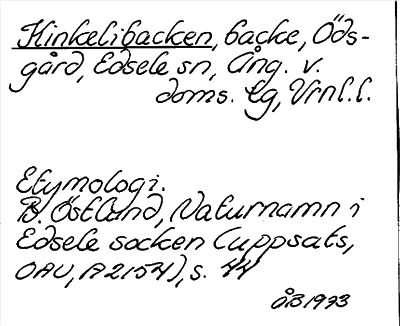 Hinkelibacken, backe, Öds-
gård, Edsele sn, Ång. v.
doms. lg, Vrnl.l.
Etymologi.
B. Östlund, Naturnamn i
Edsele socken (uppsats,
OAU, A2154), s. 44
ÅB 1973